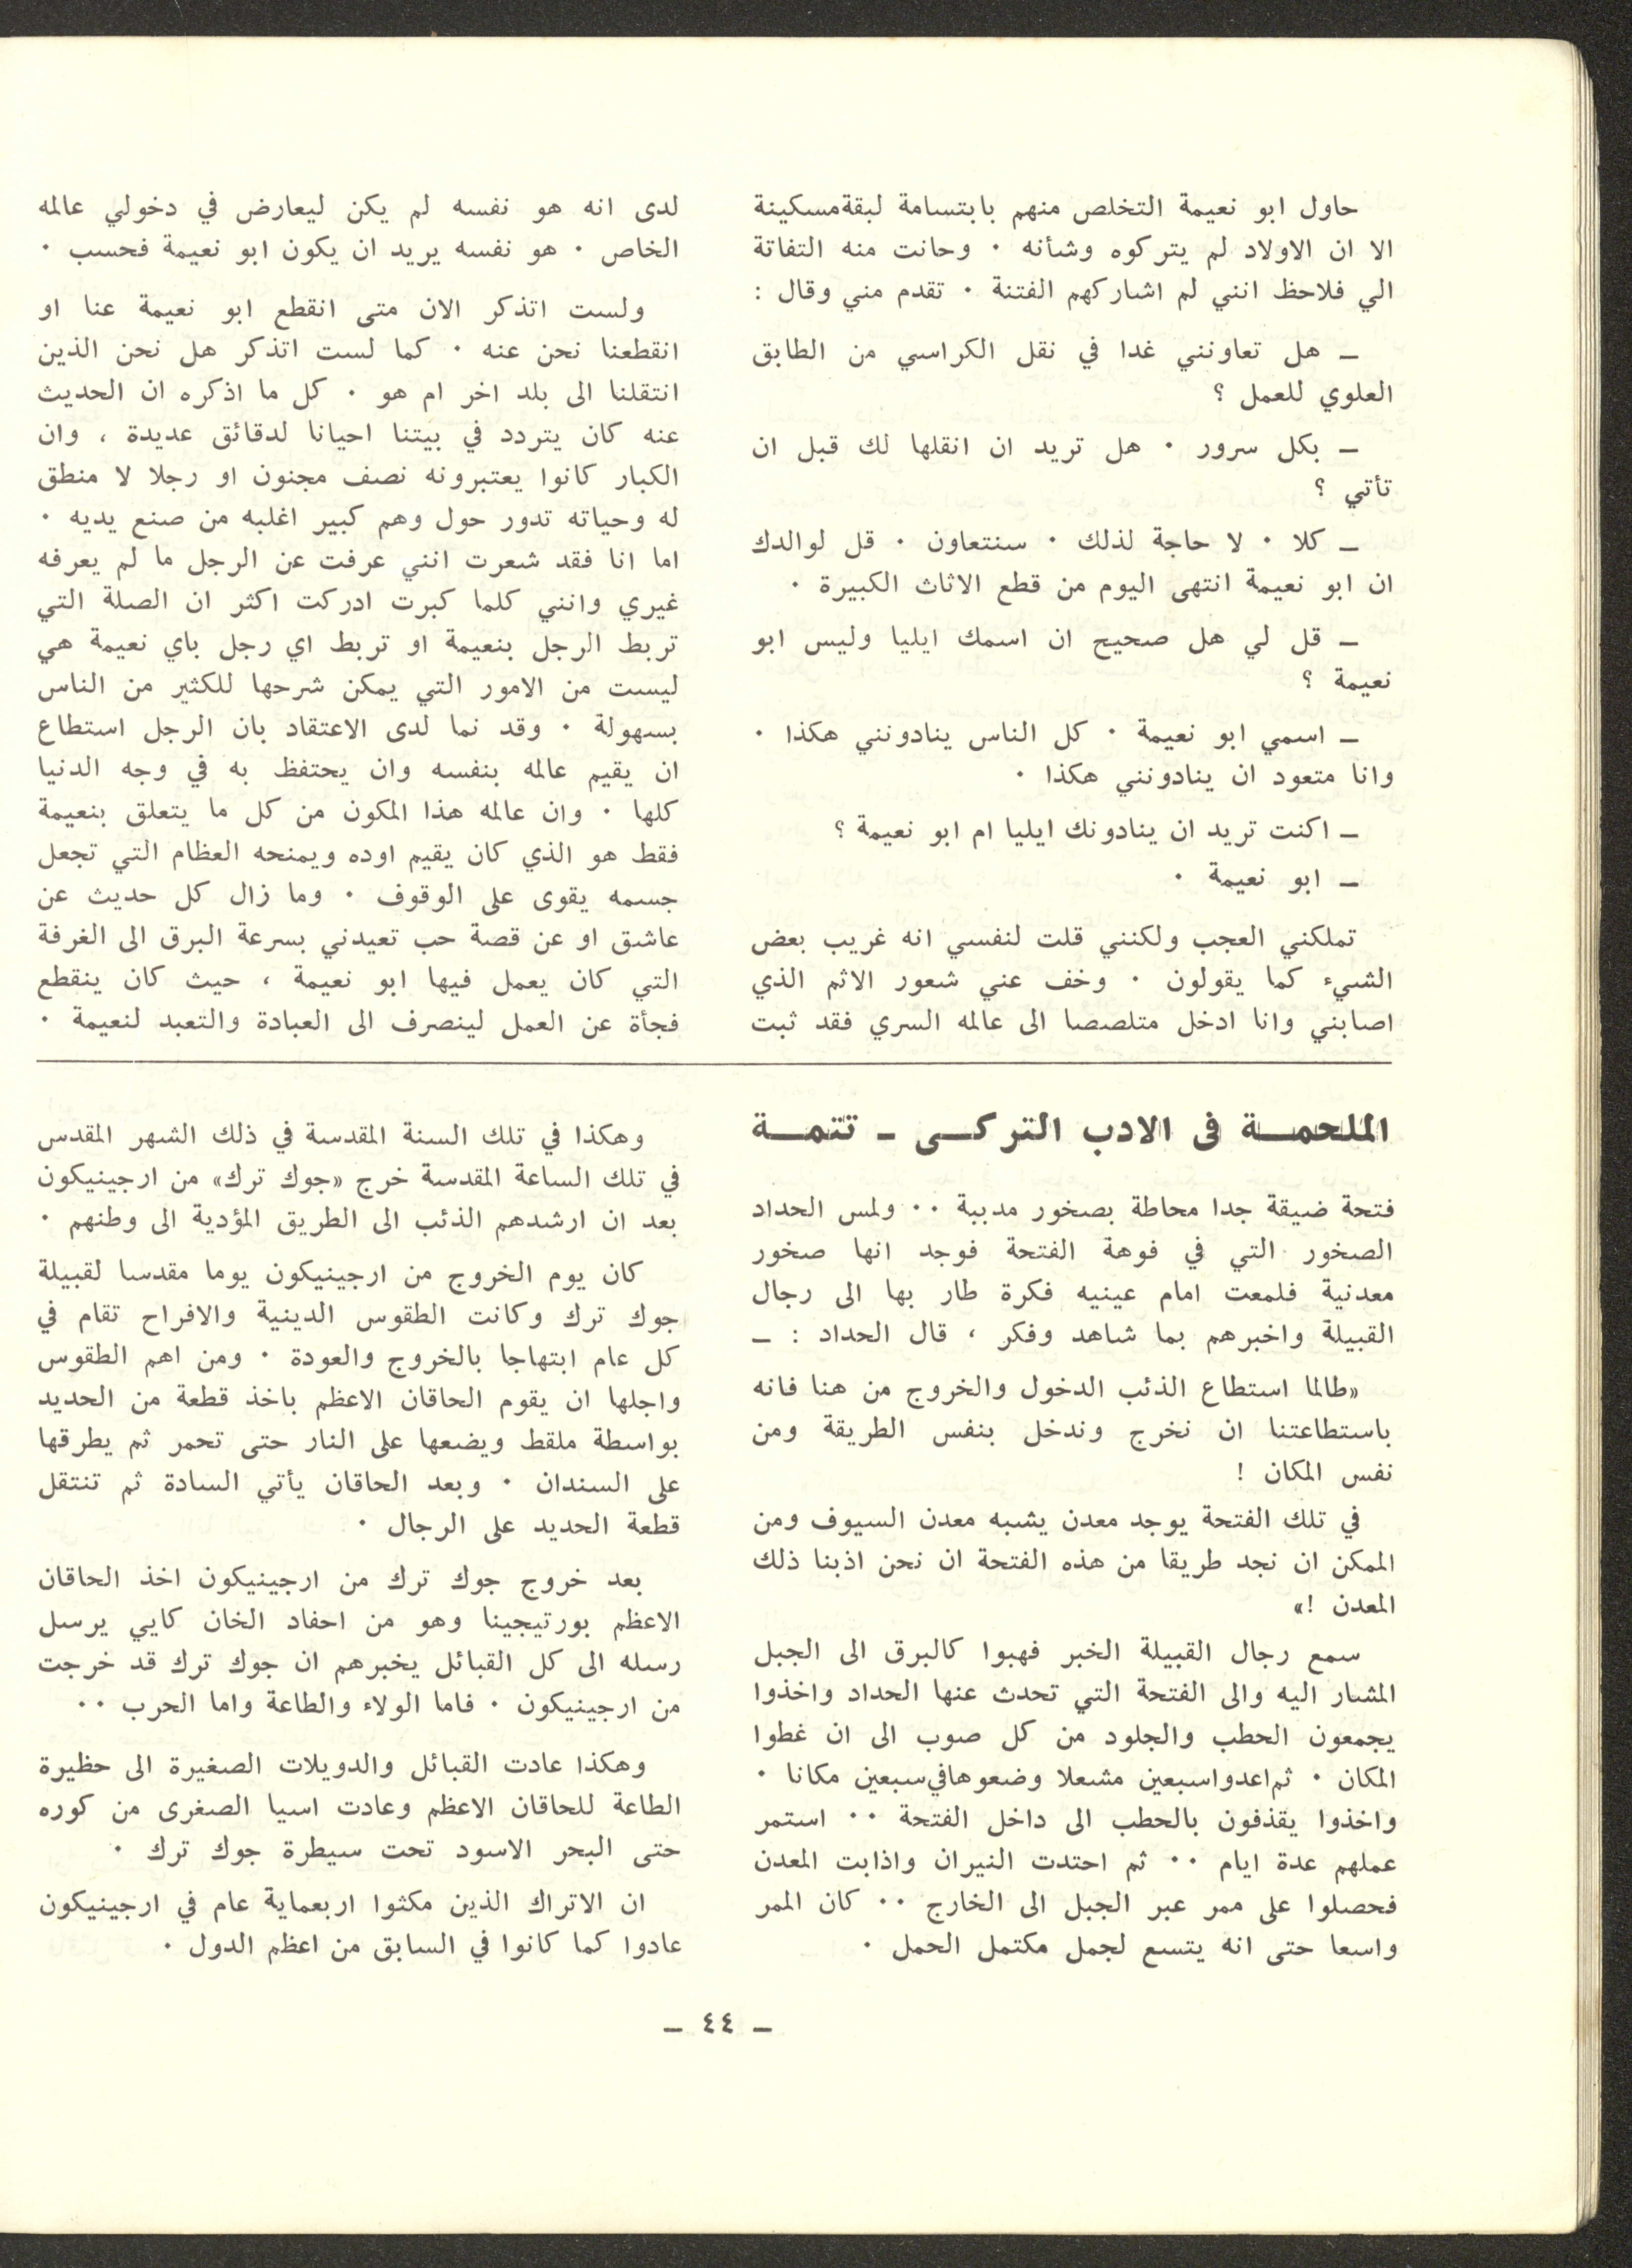 حاول ابو نعيمة التخلص منهم بابتسامة لبقةمسكينة
الا ان الاولاد لم يتركوه وشأنه · وحانت منه التفاتة
الي فلاحظ انني لم اشاركهم الفتنة · تقدم مني وقال :
ــ هل تعاونني غدا في نقل الكراسي من الطابق
العلوي للعمل ؟
ــ بكل سرور · هل تريد ان انقلها لك قبل ان
تأتي ؟
ــ كلا · لا حاجة لذلك · سنتعاون · قل لوالدك
ان ابو نعيمة انتهى اليوم من قطع الاثاث الكبيرة ·
ــ قل لي هل صحيح ان اسمك ايليا وليس ابو
نعيمة ؟
ــ اسمي ابو نعيمة · كل الناس ينادونني هكذا ·
وانا متعود ان ينادونني هكذا ·
ــ اكنت تريد ان ينادونك ايليا ام ابو نعيمة ؟
ــ ابو نعيمة ·
تملكني العجب ولكنني قلت لنفسي انه غريب بعض
الشيء كما يقولون · وخف عني شعور الاثم الذي
اصابني وانا ادخل متلصصا الى عالمه السري فقد ثبت
لدى انه هو نفسه لم يكن ليعارض في دخولي عالمه
الخاص · هو نفسه يريد ان يكون ابو نعيمة فحسب ·
ولست اتذكر الان متى انقطع ابو نعيمة عنا او
انقطعنا نحن عنه · كما لست اتذكر هل نحن الذين
انتقلنا الى بلد اخر ام هو · كل ما اذكره ان الحديث
عنه كان يتردد في بيتنا احيانا لدقائق عديدة ، وان
الكبار كانوا يعتبرونه نصف مجنون او رجلا لا منطق
له وحياته تدور حول وهم كبير اغلبه من صنع يديه ·
اما انا فقد شعرت انني عرفت عن الرجل ما لم يعرفه
غيري وانني كلما كبرت ادركت اكثر ان الصلة التي
تربط الرجل بنعيمة او تربط اي رجل باي نعيمة هي
ليست من الامور التي يمكن شرحها للكثير من الناس
بسهولة · وقد نما لدى الاعتقاد بان الرجل استطاع
ان يقيم عالمه بنفسه وان يحتفظ به في وجه الدنيا
كلها · وان عالمه هذا المكون من كل ما يتعلق بنعيمة
فقط هو الذي كان يقيم اوده ويمنحه العظام التي تجعل
جسمه يقوى على الوقوف · وما زال كل حديث عن
عاشق او عن قصة حب تعيدني بسرعة البرق الى الغرفة
التي كان يعمل فيها ابو نعيمة ، حيث كان ينقطع
فجأة عن العمل لينصرف الى العبادة والتعبد لنعيمة ·
الملحمـــة فى الادب التركـــى ــ تتمـــة
فتحة ضيقة جدا محاطة بصخور مدببة ·· ولمس الحداد
الصخور التي في فوهة الفتحة فوجد انها صخور
معدنية فلمعت امام عينيه فكرة طار بها الى رجال
القبيلة واخبرهم بما شاهد وفكر ، قال الحداد : ــ
«طالما استطاع الذئب الدخول والخروج من هنا فانه
باستطاعتنا ان نخرج وندخل بنفس الطريقة ومن
نفس المكان !
في تلك الفتحة يوجد معدن يشبه معدن السيوف ومن
الممكن ان نجد طريقا من هذه الفتحة ان نحن اذبنا ذلك
المعدن !»
سمع رجال القبيلة الخبر فهبوا كالبرق الى الجبل
المشار اليه والى الفتحة التي تحدث عنها الحداد واخذوا
يجمعون الحطب والجلود من كل صوب الى ان غطوا
المكان · ثم‌اعدواسبعين مشعلا وضعوهافي‌سبعين مكانا ·
واخذوا يقذفون بالحطب الى داخل الفتحة ·· استمر
عملهم عدة ايام ·· ثم احتدت النيران واذابت المعدن
فحصلوا على ممر عبر الجبل الى الخارج ·· كان الممر
واسعا حتى انه يتسع لجمل مكتمل الحمل ·
وهكذا في تلك السنة المقدسة في ذلك الشهر المقدس
في تلك الساعة المقدسة خرج «جوك ترك» من ارجينيكون
بعد ان ارشدهم الذئب الى الطريق المؤدية الى وطنهم ·
كان يوم الخروج من ارجينيكون يوما مقدسا لقبيلة
جوك ترك وكانت الطقوس الدينية والافراح تقام في
كل عام ابتهاجا بالخروج والعودة · ومن اهم الطقوس
واجلها ان يقوم الحاقان الاعظم باخذ قطعة من الحديد
بواسطة ملقط ويضعها على النار حتى تحمر ثم يطرقها
على السندان · وبعد الحاقان يأتي السادة ثم تنتقل
قطعة الحديد على الرجال ·
بعد خروج جوك ترك من ارجينيكون اخذ الحاقان
الاعظم بورتيجينا وهو من احفاد الخان كايي يرسل
رسله الى كل القبائل يخبرهم ان جوك ترك قد خرجت
من ارجينيكون · فاما الولاء والطاعة واما الحرب ··
وهكذا عادت القبائل والدويلات الصغيرة الى حظيرة
الطاعة للحاقان الاعظم وعادت اسيا الصغرى من كوره
حتى البحر الاسود تحت سيطرة جوك ترك ·
ان الاتراك الذين مكثوا اربعماية عام في ارجينيكون
عادوا كما كانوا في السابق من اعظم الدول ·
ــ ٤٤ ــ